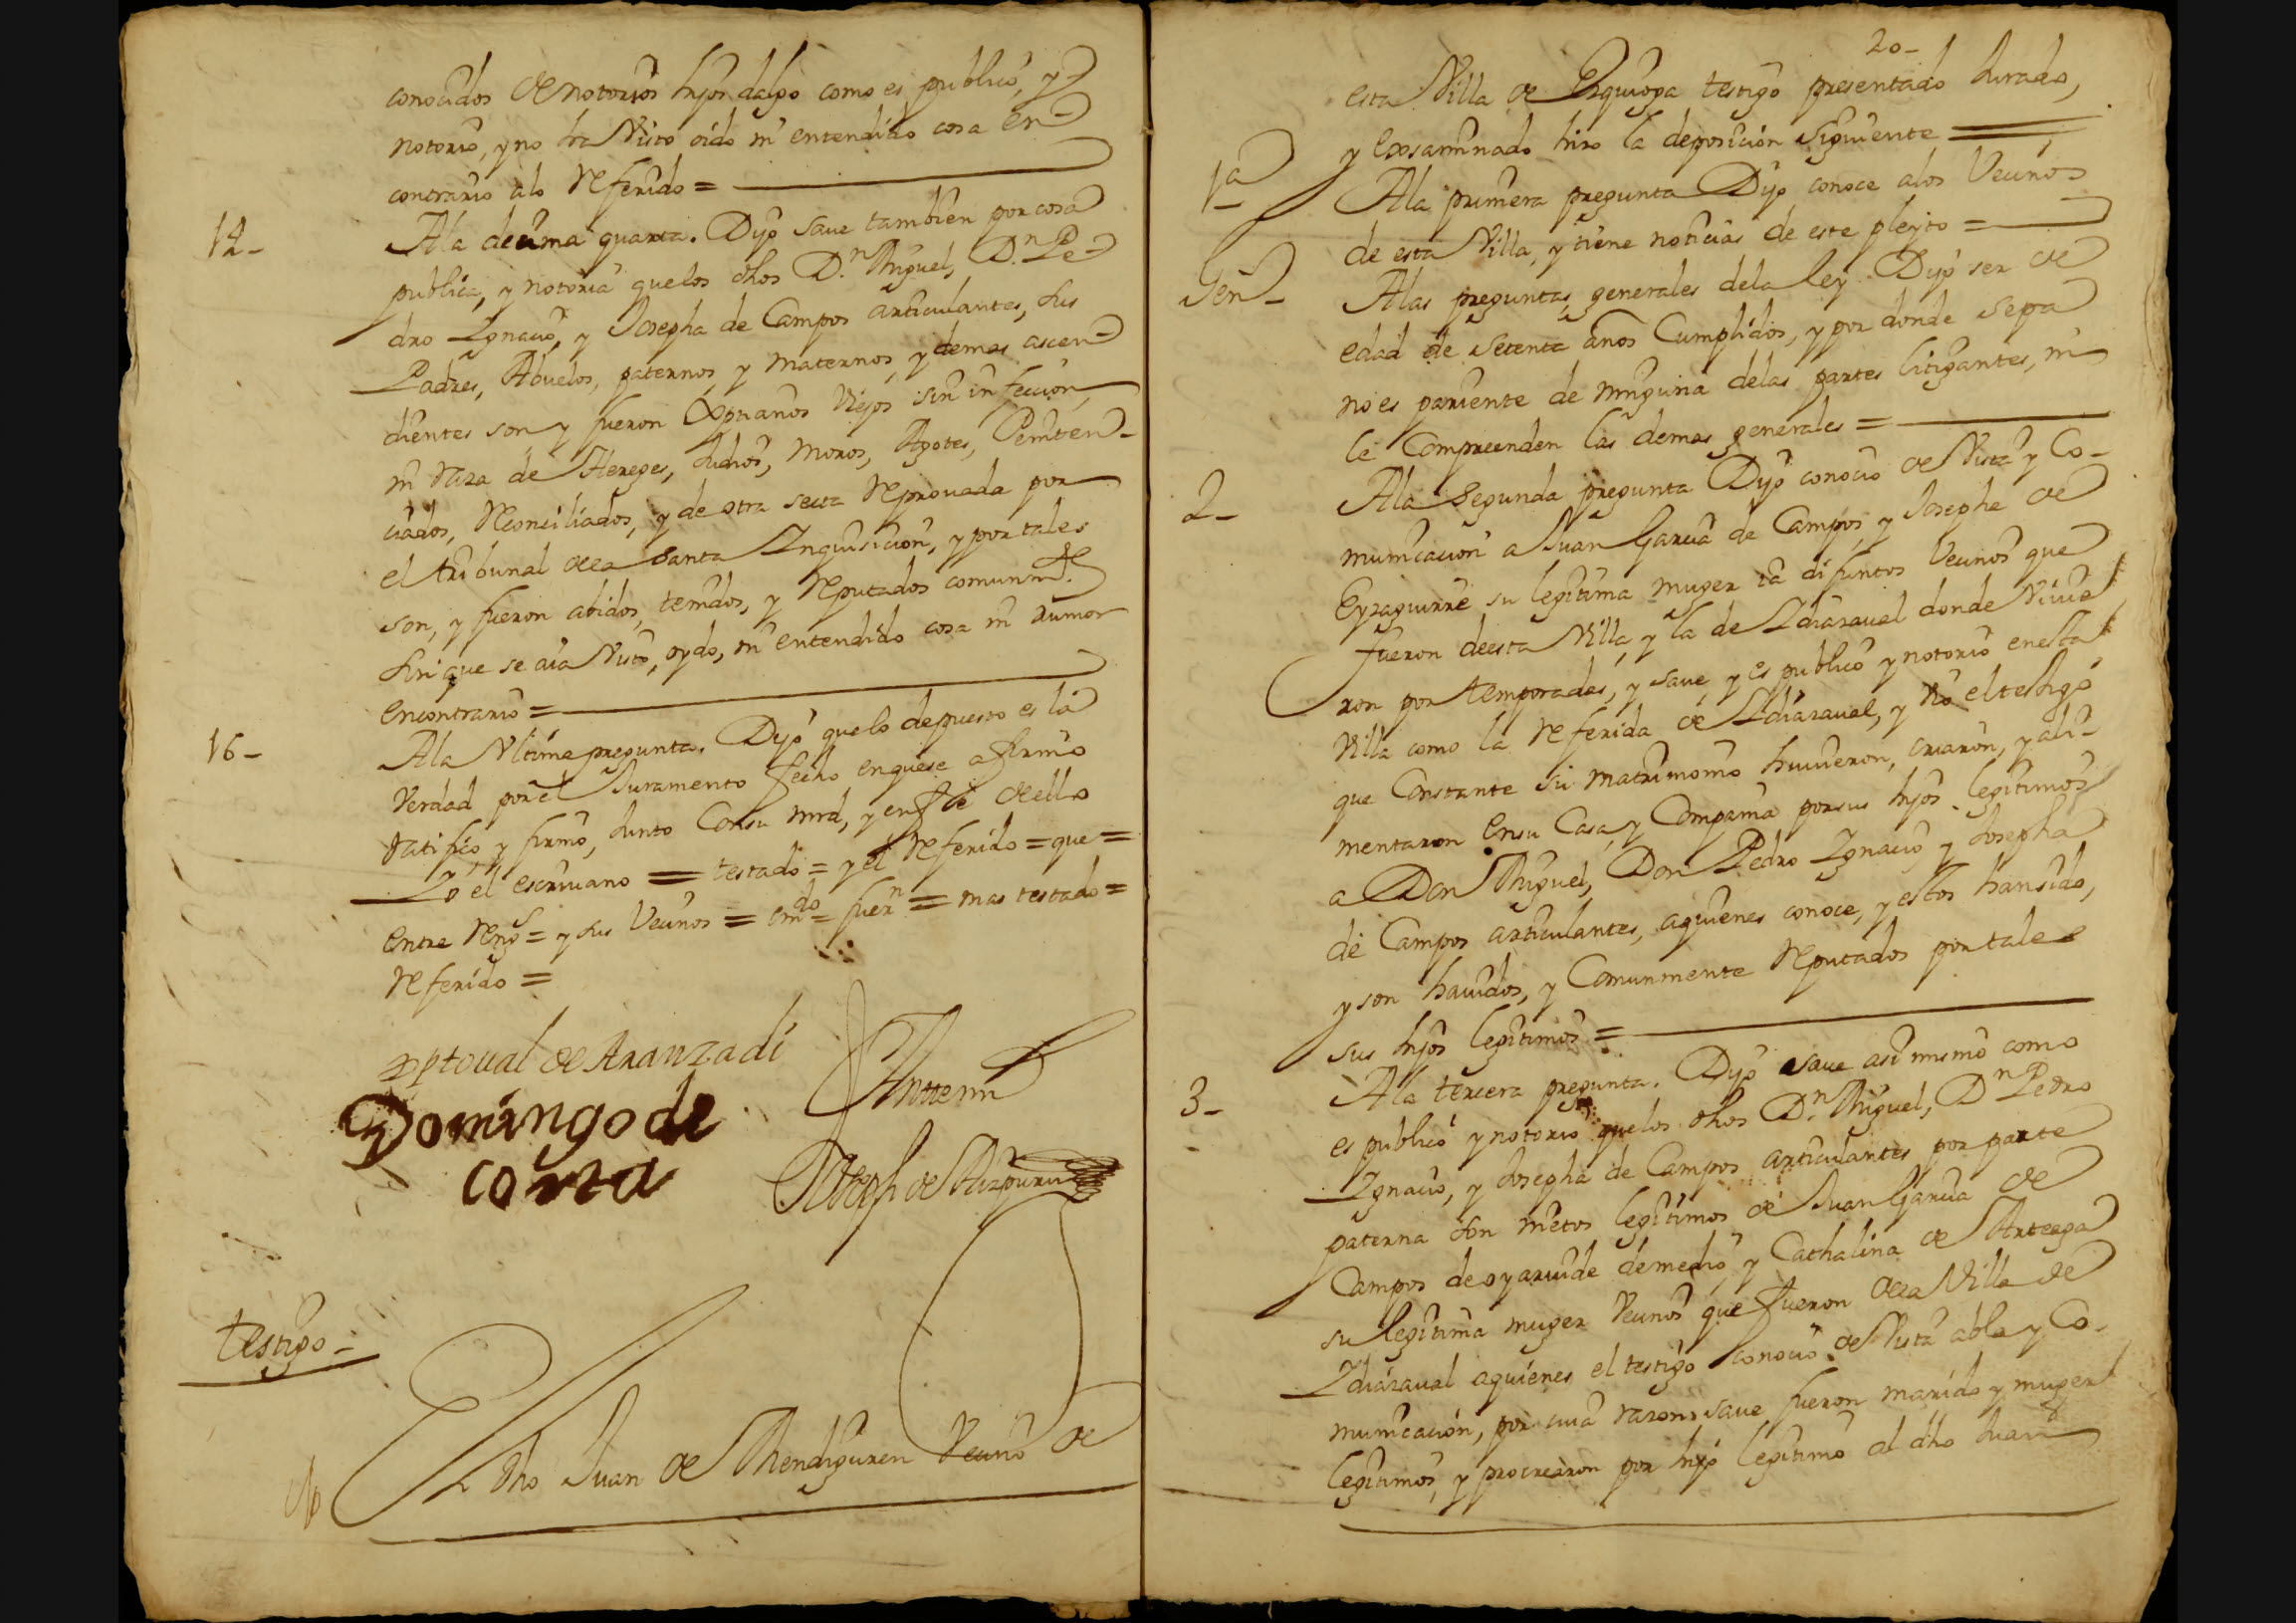 conocidos de notorios hijos dalgo como es publico, y
notorio, y no ha visto oido ni entendido cosa en
contrario a lo referido =
14-
A la deçima quarta. Dijo save tambien por cosa
publica, y notoria que los dhos D.n Miguel, D.n Pe-
dro Ignacio, y Josepha de Campos articulantes, sus
Padres, Abuelos, paternos, y maternos, y demas ascen-
dientes son y fueron Xptianos viejos sin infeccion,
ni raza de Hereges, Judios, moros, Agotes, Peniten-
ciados, Reconciliados, y de otra secta Reprovada por
el tribunal de la Santa Inquisicion, y por tales
son, y fueron abidos, tenidos, y Reputados comunmte.
sin que se aia visto, oydo, ni entendido cosa ni rumor
en contrario =
16-
A la Ultima pregunta. Dijo que lo depuesto es la
verdad por el Juramento fecho en que se afirmo
ratifico, y firmo, junto con su mrd, y en fee de ello
Yo el escrivano = testado = y el referido = que =
entre Reng.s = y sus vecinos = em.do = fuer.n = mas testado =
referido =
Xptoual de Aranzadi
Antte mi
Domingo de
corta
Joseph de Aizpuru
testigo-
El dho Juan de Mendiguren vecino de
20-
esta Villa de Ezquioga testigo presentado jurado,
y exsaminado hizo la deposicion siguiente =
1a
A la primera pregunta Dijo conoce a los Vecinos
de esta Villa, y tiene noticias de este pleyto =
Gen-
A las preguntas generales de la ley. Dijo ser de
edad de setenta años Cumplidos, y por donde sepa
no es pariente de ninguna de las partes litigantes, ni
le Compreenden las demas generales =
2-
A la Segunda pregunta Dijo conocio de Vista y Co-
municacion a Juan Garcia de Campos, y Josepha de
Eyzaguirre su legitima muger ia difuntos vecinos que
fueron de esta Villa, y la de Idiazaual donde viuie
ron por temporadas, y saue, y es publico y notorio en esta
Villa como la referida de Idiazaual, y vio el testigo
que Constante su matrimonio huuieron, criaron, y ali-
mentaron en su Casa, y Compania por sus hijos legitimos
a Don Miguel, Don Pedro Ignacio y Josepha
de Campos articulantes, a quienes conoce, y estos han sido,
y son hauidos, y Comunmente Reputados por tales
sus hijos legitimos =
3-
A la tercera pregunta. Dijo saue asi mismo como
es publico y notorio que los dhos D.n Miguel, D.n Pedro
Ignacio, y Josepha de Campos articulantes por parte
paterna son nietos legitimos de Juan Garcia de
Campos de oyaruide de medio y Cathalina de Arteaga
su legitima muger vecinos que fueron de la Villa de
Idiazaual a quienes el testigo conocio de Vista abla y Co-
municacion, por cuia razon saue fueron marido y muger
legitimos, y procrearon por hijo legitimo al dho Juan